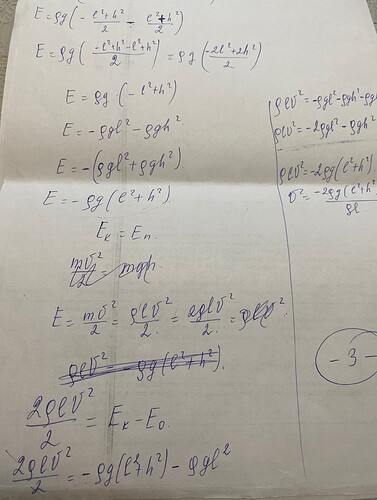 E = ρg(-ℓ²+h²/2 - ℓ²+h²/2)
E = ρg(-ℓ²+h²-ℓ²+h²/2) = ρg(-2ℓ²+2h²/2)
E = ρg(-ℓ²+h²)
E = -ρgℓ²-ρgh²
E = -(ρgℓ²+ρgh²)
E = -ρg(ℓ²+h²)
Eк = Eп.
E = mv²/2 = ρℓv²/2 = 2ρℓv²/2 =
ρℓv² = ρg(ℓ²+h²).
2ρℓv²/2 = Eк - E₀
2ρℓv²/2 = -ρg(ℓ²+h²) - ρgℓ²
ρℓv² = -ρgℓ²-ρgh²-ρg
ρℓv² = -2ρgℓ²-ρgh²
ρℓv² = -2ρg(ℓ²+h²)
v² = -2ρg(ℓ²+h²/ρℓ
-3-